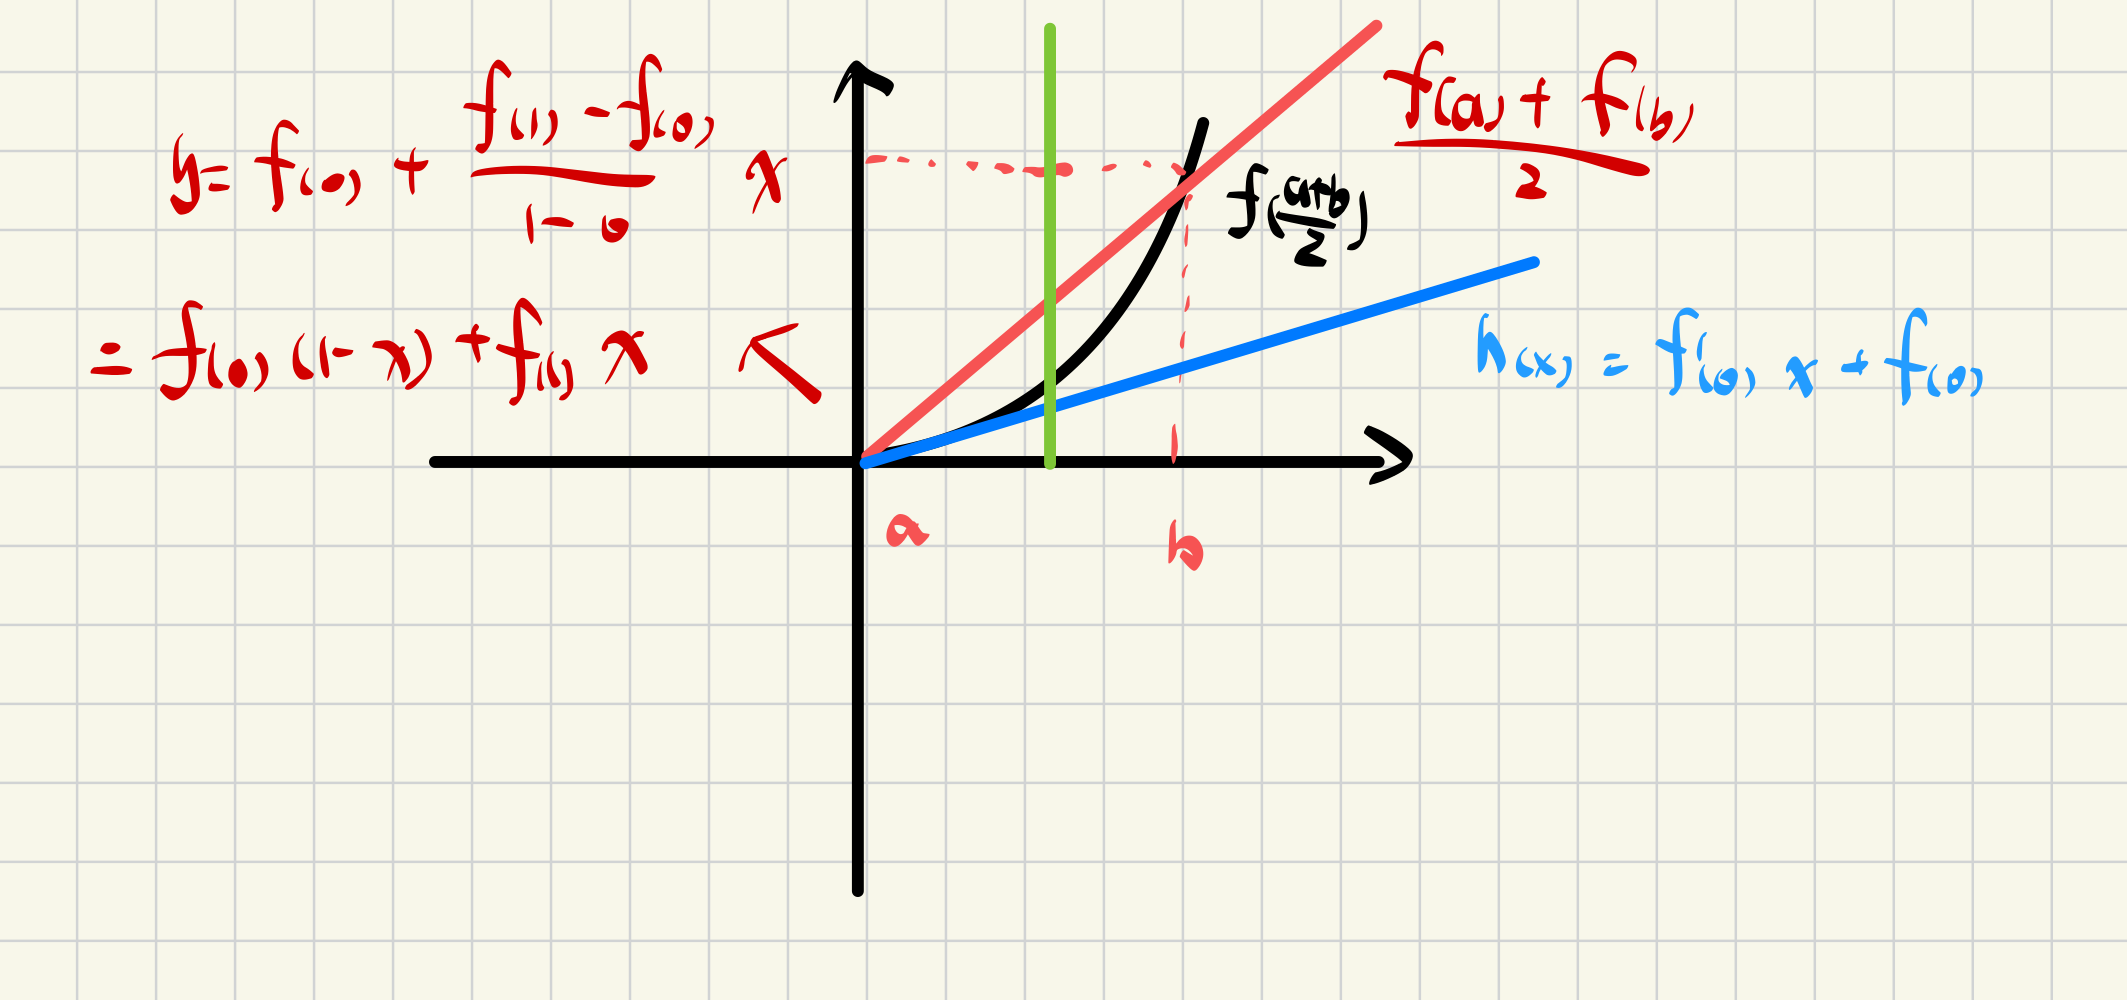 y = f(0) + \frac{f(1) - f(0)}{1 - 0} x
= f(0) (1 - x) + f(1) x
\frac{f(a) + f(b)}{2}
f(\frac{a+b}{2})
h(x) = f'(0) x + f(0)
a
b